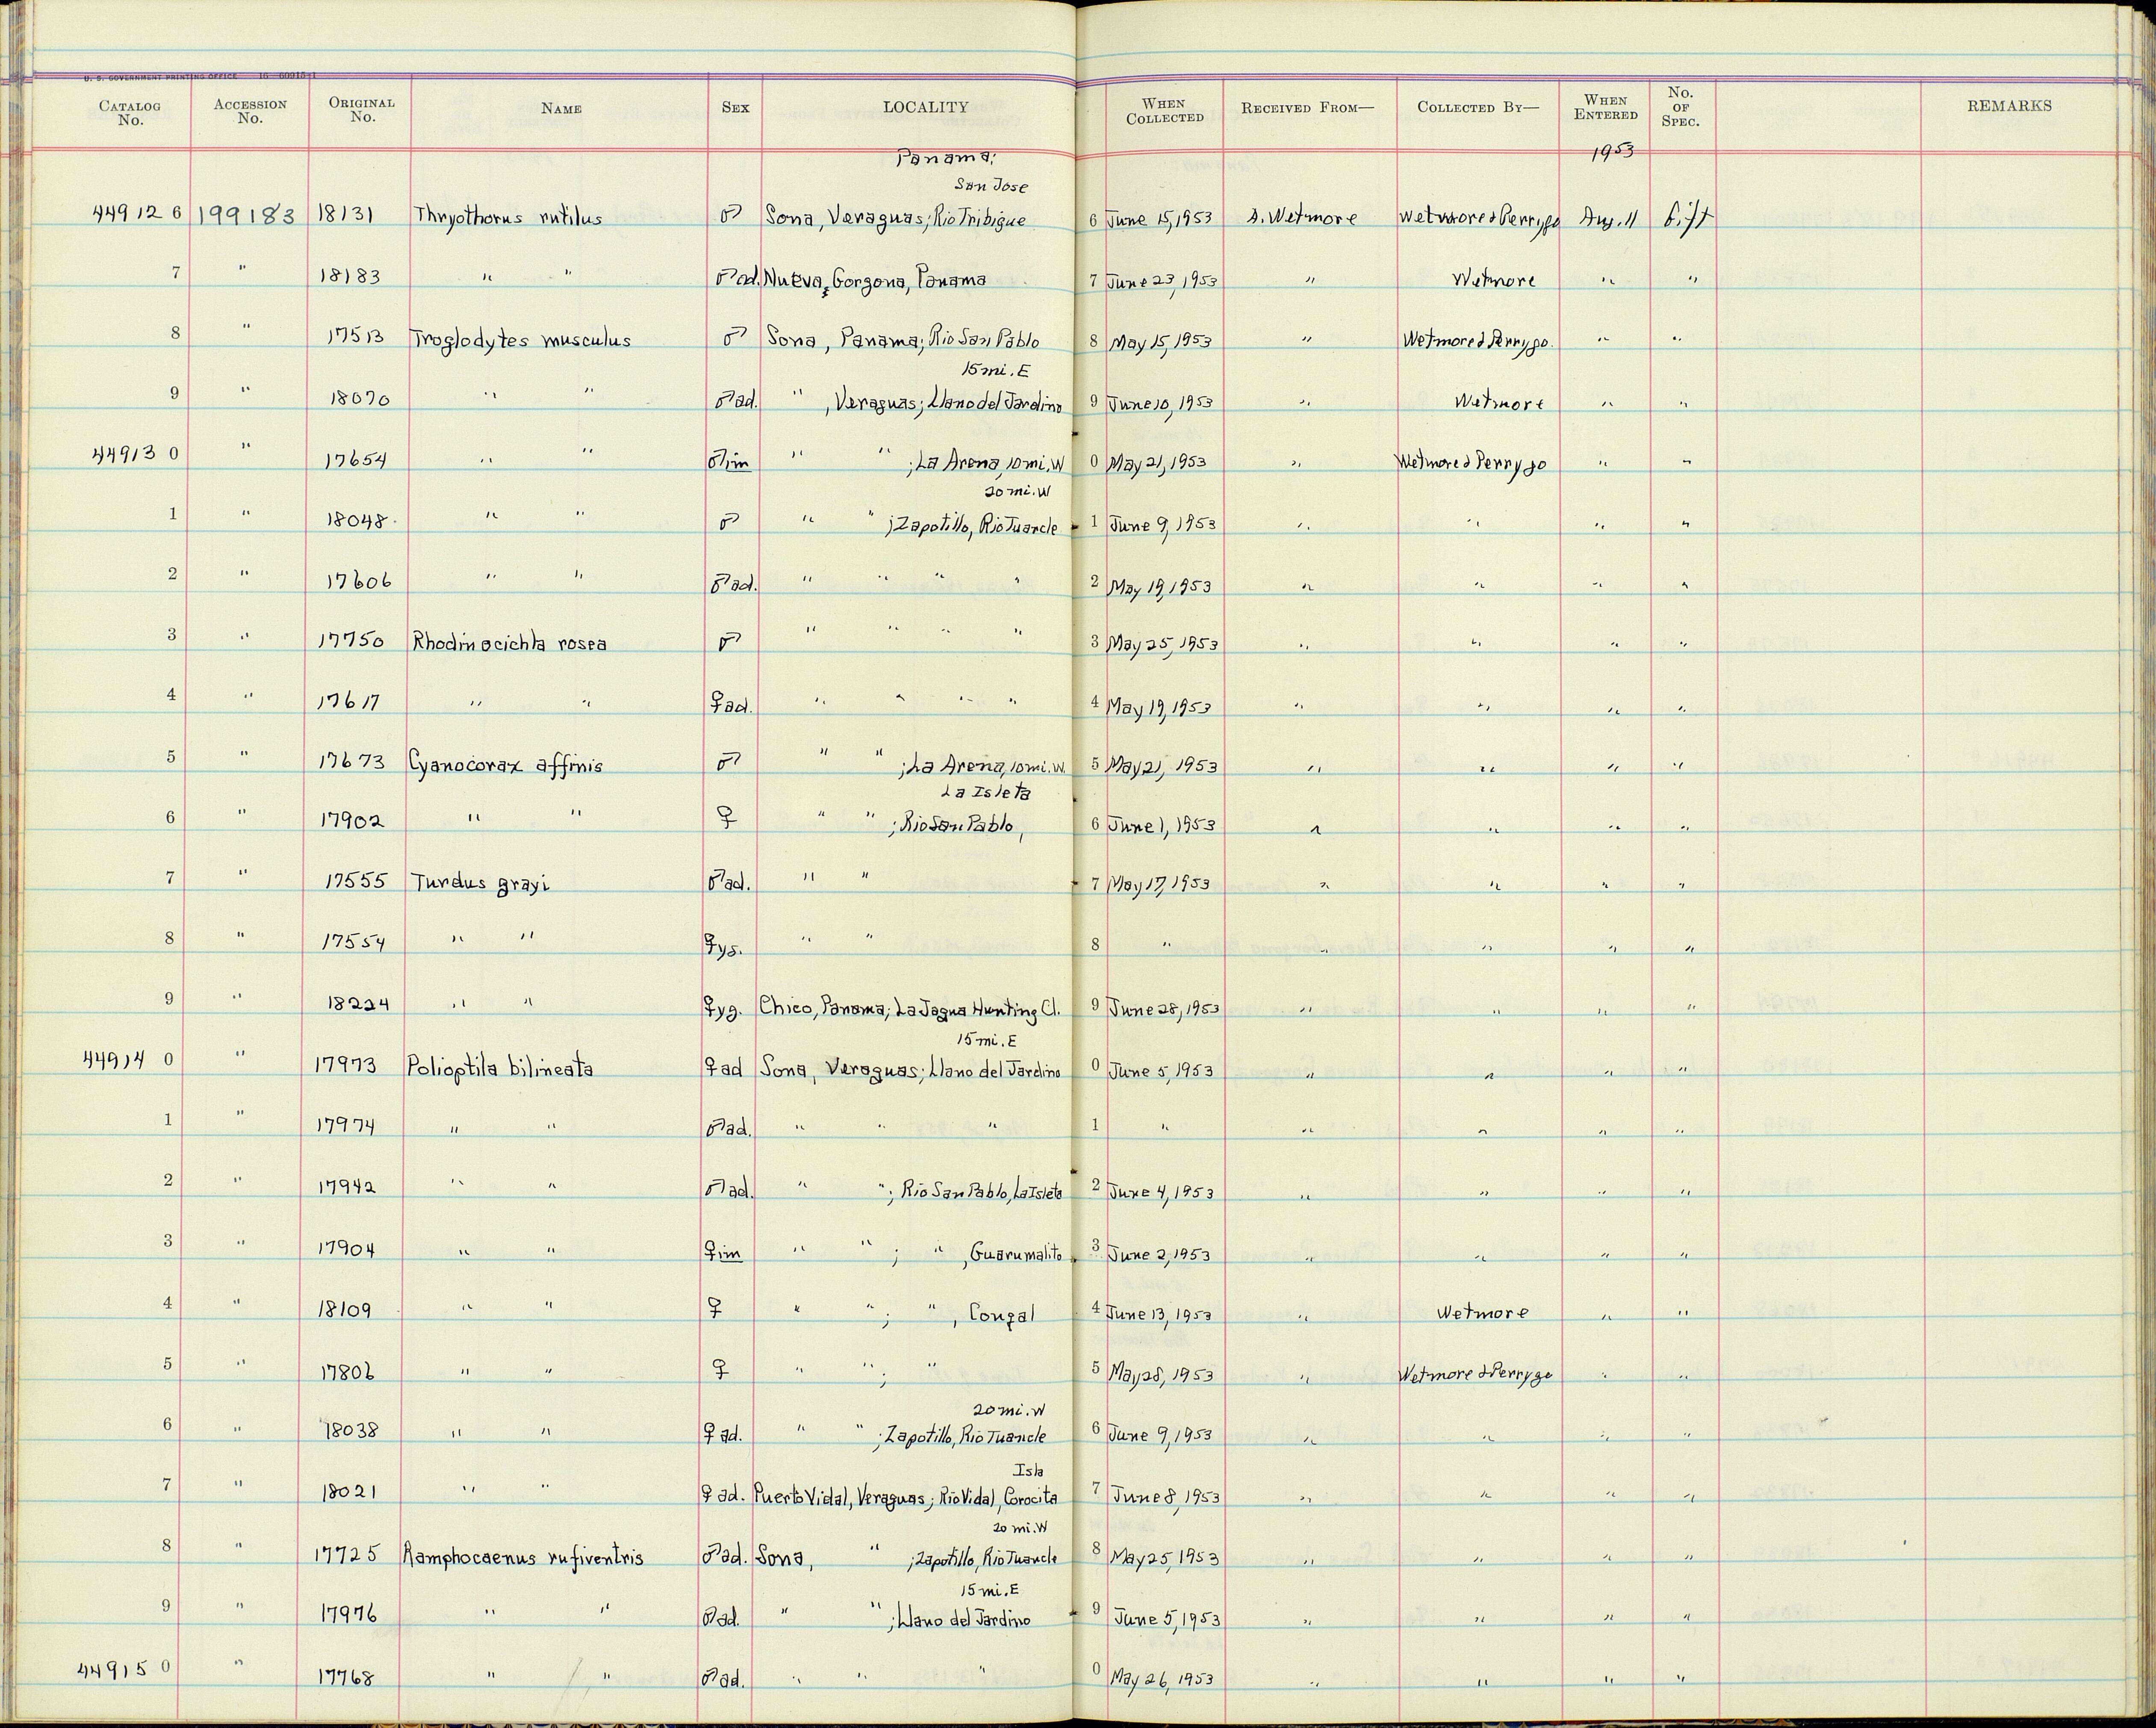 U. S. GOVERNMENT PRINTING OFFICE 16—60915-1
CATALOG No. ACCESSION No. ORIGINAL No. NAME SEX LOCALITY WHEN COLLECTED RECEIVED FROM— COLLECTED BY— WHEN ENTERED No. OF SPEC. REMARKS
Panama; 1953
San Jose
449126 199183 18131 Thryothorus rutilus ♂ Sona, Veraguas; Rio Tribique 6 June 15, 1953 A. Wetmore Wetmore & Perrygo Aug. 11 Gift
7 " 18183 " " ♂ ad. Nueva Gorgona, Panama 7 June 23, 1953 " Wetmore " "
8 " 17513 Troglodytes musculus ♂ Sona, Panama; Rio San Pablo 8 May 15, 1953 " Wetmore & Perrygo. " "
15 mi. E
9 " 18070 " " ♂ ad. " , Veraguas; Llano del Jardino 9 June 10, 1953 " Wetmore " "
449130 " 17654 " " ♂ im " " ; La Arena, 10 mi. W 0 May 21, 1953 " Wetmore & Perrygo " "
20 mi. W
1 " 18048 " " ♂ " " ; Zapotillo, Rio Tuancle 1 June 9, 1953 " " " "
2 " 17606 " " ♂ ad. " " " " 2 May 19, 1953 " " " "
3 " 17750 Rhodinocichla rosea ♂ " " " " 3 May 25, 1953 " " " "
4 " 17617 " " ♀ ad. " " " " 4 May 19, 1953 " " " "
5 " 17673 Cyanocorax affinis ♂ " " ; La Arena, 10 mi. W. 5 May 21, 1953 " " " "
La Isleta
6 " 17902 " " ♀ " " ; Rio San Pablo, 6 June 1, 1953 " " " "
7 " 17555 Turdus grayi ♂ ad. " " 7 May 17, 1953 " " " "
8 " 17554 " " ♀ yg. " " 8 " " " " "
9 " 18224 " " ♀ yg. Chico, Panama; La Jagua Hunting Cl. 9 June 28, 1953 " " " "
15 mi. E
449140 " 17973 Polioptila bilineata ♀ ad Sona, Veraguas; Llano del Jardino 0 June 5, 1953 " " " "
1 " 17974 " " ♂ ad. " " " 1 " " " " "
2 " 17942 " " ♂ ad. " " ; Rio San Pablo, La Isleta 2 June 4, 1953 " " " "
3 " 17904 " " ♀ im " " ; " , Guarumalito 3 June 2, 1953 " " " "
4 " 18109 " " ♀ " " ; " , Congal 4 June 13, 1953 " Wetmore " "
5 " 17806 " " ♀ " " ; " 5 May 28, 1953 " Wetmore & Perrygo " "
20 mi. W
6 " 18038 " " ♀ ad. " " ; Zapotillo, Rio Tuancle 6 June 9, 1953 " " " "
Isla
7 " 18021 " " ♀ ad. Puerto Vidal, Veraguas; Rio Vidal, Corocita 7 June 8, 1953 " " " "
20 mi. W
8 " 17725 Ramphocaenus rufiventris ♂ ad. Sona, " ; Zapotillo, Rio Tuancle 8 May 25, 1953 " " " "
15 mi. E
9 " 17976 " " ♂ ad. " " ; Llano del Jardino 9 June 5, 1953 " " " "
449150 " 17768 " " ♂ ad. " " " 0 May 26, 1953 " " " "